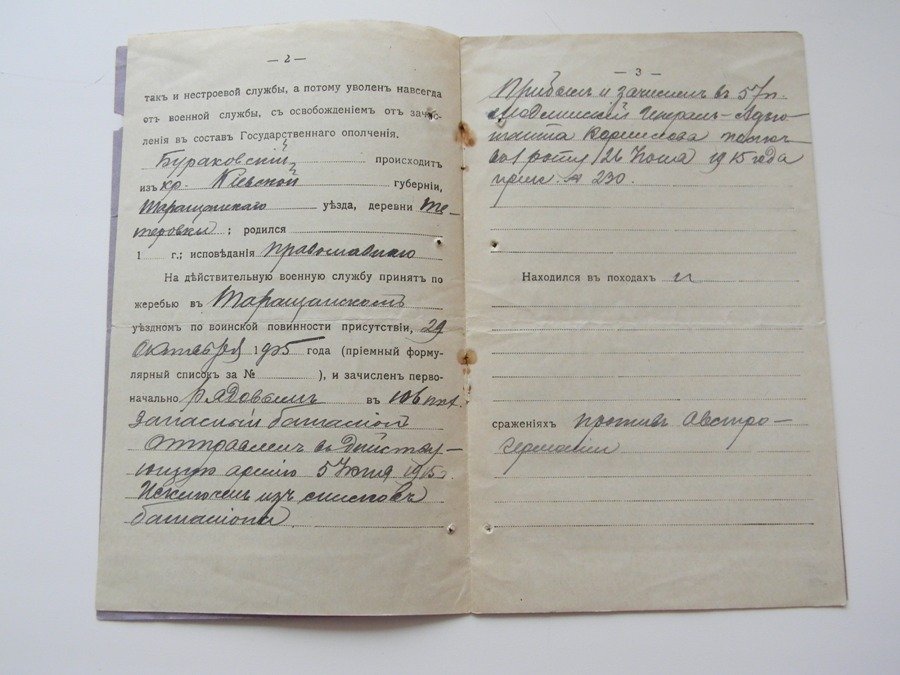 — 2 —
такъ и нестроевой службы, а потому уволенъ навсегда
отъ военной службы, съ освобожденіемъ отъ зачис-
ленія въ составъ Государственнаго ополченія.
Бураковскій происходитъ
изъ кр. Кіевской губерніи,
Таращанскаго уѣзда, деревни Те-
теровки ; родился
1 г.; исповѣданія православнаго
На дѣйствительную военную службу принятъ по
жеребью въ Таращанскомъ
уѣздномъ по воинской повинности присутствіи, 29
октября 1915 года (пріемный форму-
лярный списокъ за № ), и зачисленъ перво-
начально рядовымъ въ 106 пѣх.
запасный баталіонъ
Отправленъ въ дѣйству-
ющую армію 5 1915 г.
Исключенъ изъ списковъ
баталіона
— 3 —
Прибылъ и зачисленъ въ 57 п.
Модлинскій Генералъ-Адъю-
танта Корнилова полкъ
въ роту 26 1915 года
прик. № 230.
Находился въ походахъ и
сраженіяхъ противъ Австро-
германіи